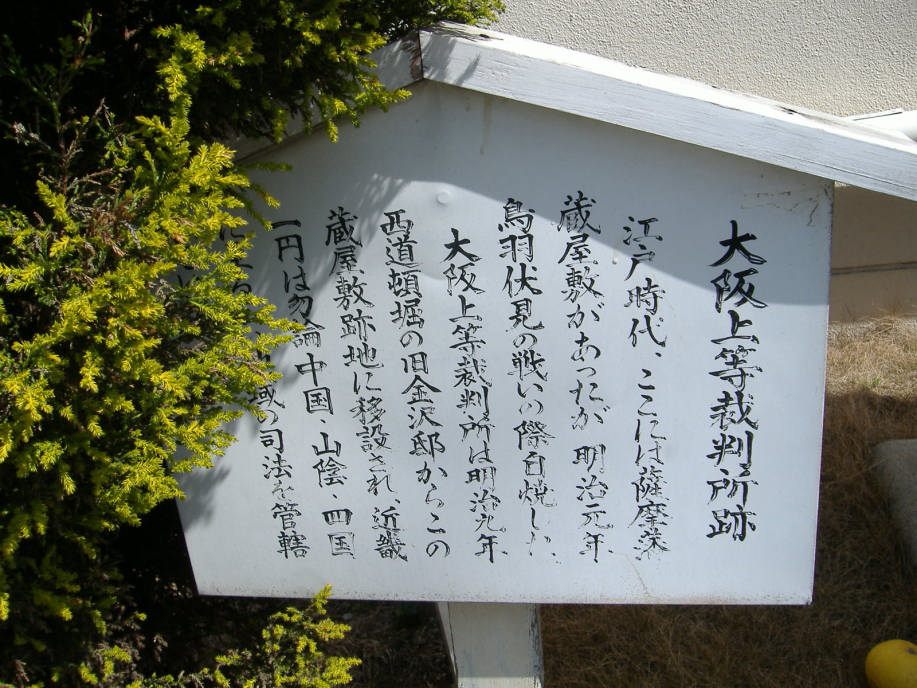 大阪上等裁判所跡
江戸時代、ここには薩摩藩
蔵屋敷があったが明治元年
鳥羽伏見の戦いの際自焼した。
大阪上等裁判所は明治九年
西道頓堀の旧金沢邸からこの
蔵屋敷跡地に移設され、近畿
一円は勿論中国、山陰、四国
域の司法を管轄